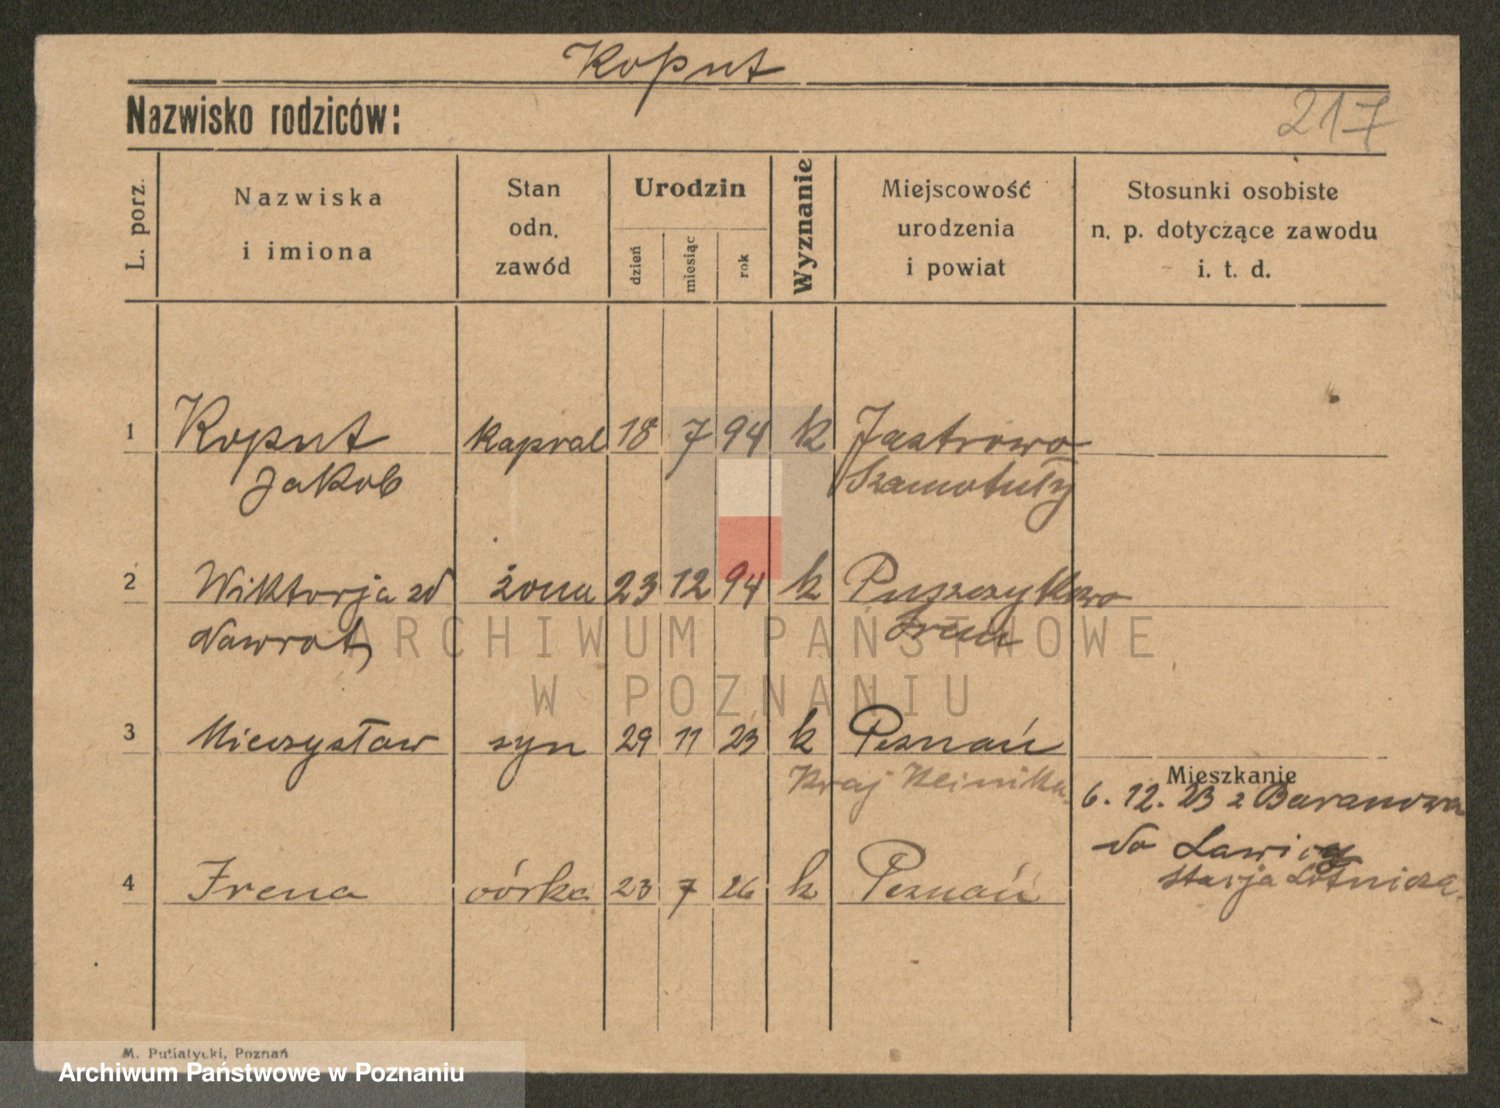 Koput
Nazwisko rodziców:
217
L. porz.
Nazwiska
i imiona
Stan
odn.
zawód
Urodzin
dzień
miesiąc
rok
Wyznanie
Miejscowość
urodzenia
i powiat
Stosunki osobiste
n. p. dotyczące zawodu
i. t. d.
1 Koput kapral 18 7 94 k Jastrowo
Jakob Szamotuły
2 Wiktorja zd żona 23 12 94 k Puszczykowo
Nawrot Śrem
ARCHIWUM PAŃSTWOWE
W POZNANIU
3 Mieczysław syn 29 11 23 k Poznań
Kraj
Mieszkanie
6. 12. 23 z Baranowa
do Ławicy
stacja Lotnicza.
4 Irena córka 23 7 26 k Poznań
M. Putiatycki, Poznań
Archiwum Państwowe w Poznaniu